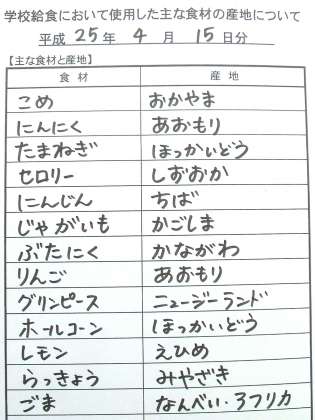 学校給食において使用した主な食材の産地について
平成 25 年 4 月 15 日分
【主な食材と産地】
食材 産地
こめ おかやま
にんにく あおもり
たまねぎ ほっかいどう
セロリー しずおか
にんじん ちば
じゃがいも かごしま
ぶたにく かながわ
りんご あおもり
グリンピース ニュージーランド
ホールコーン ほっかいどう
レモン えひめ
らっきょう みやざき
ごま なんべい・アフリカ